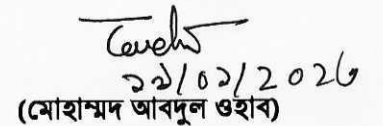 ২২/০১/২০২৬
(মোহাম্মদ আবদুল ওহাব)